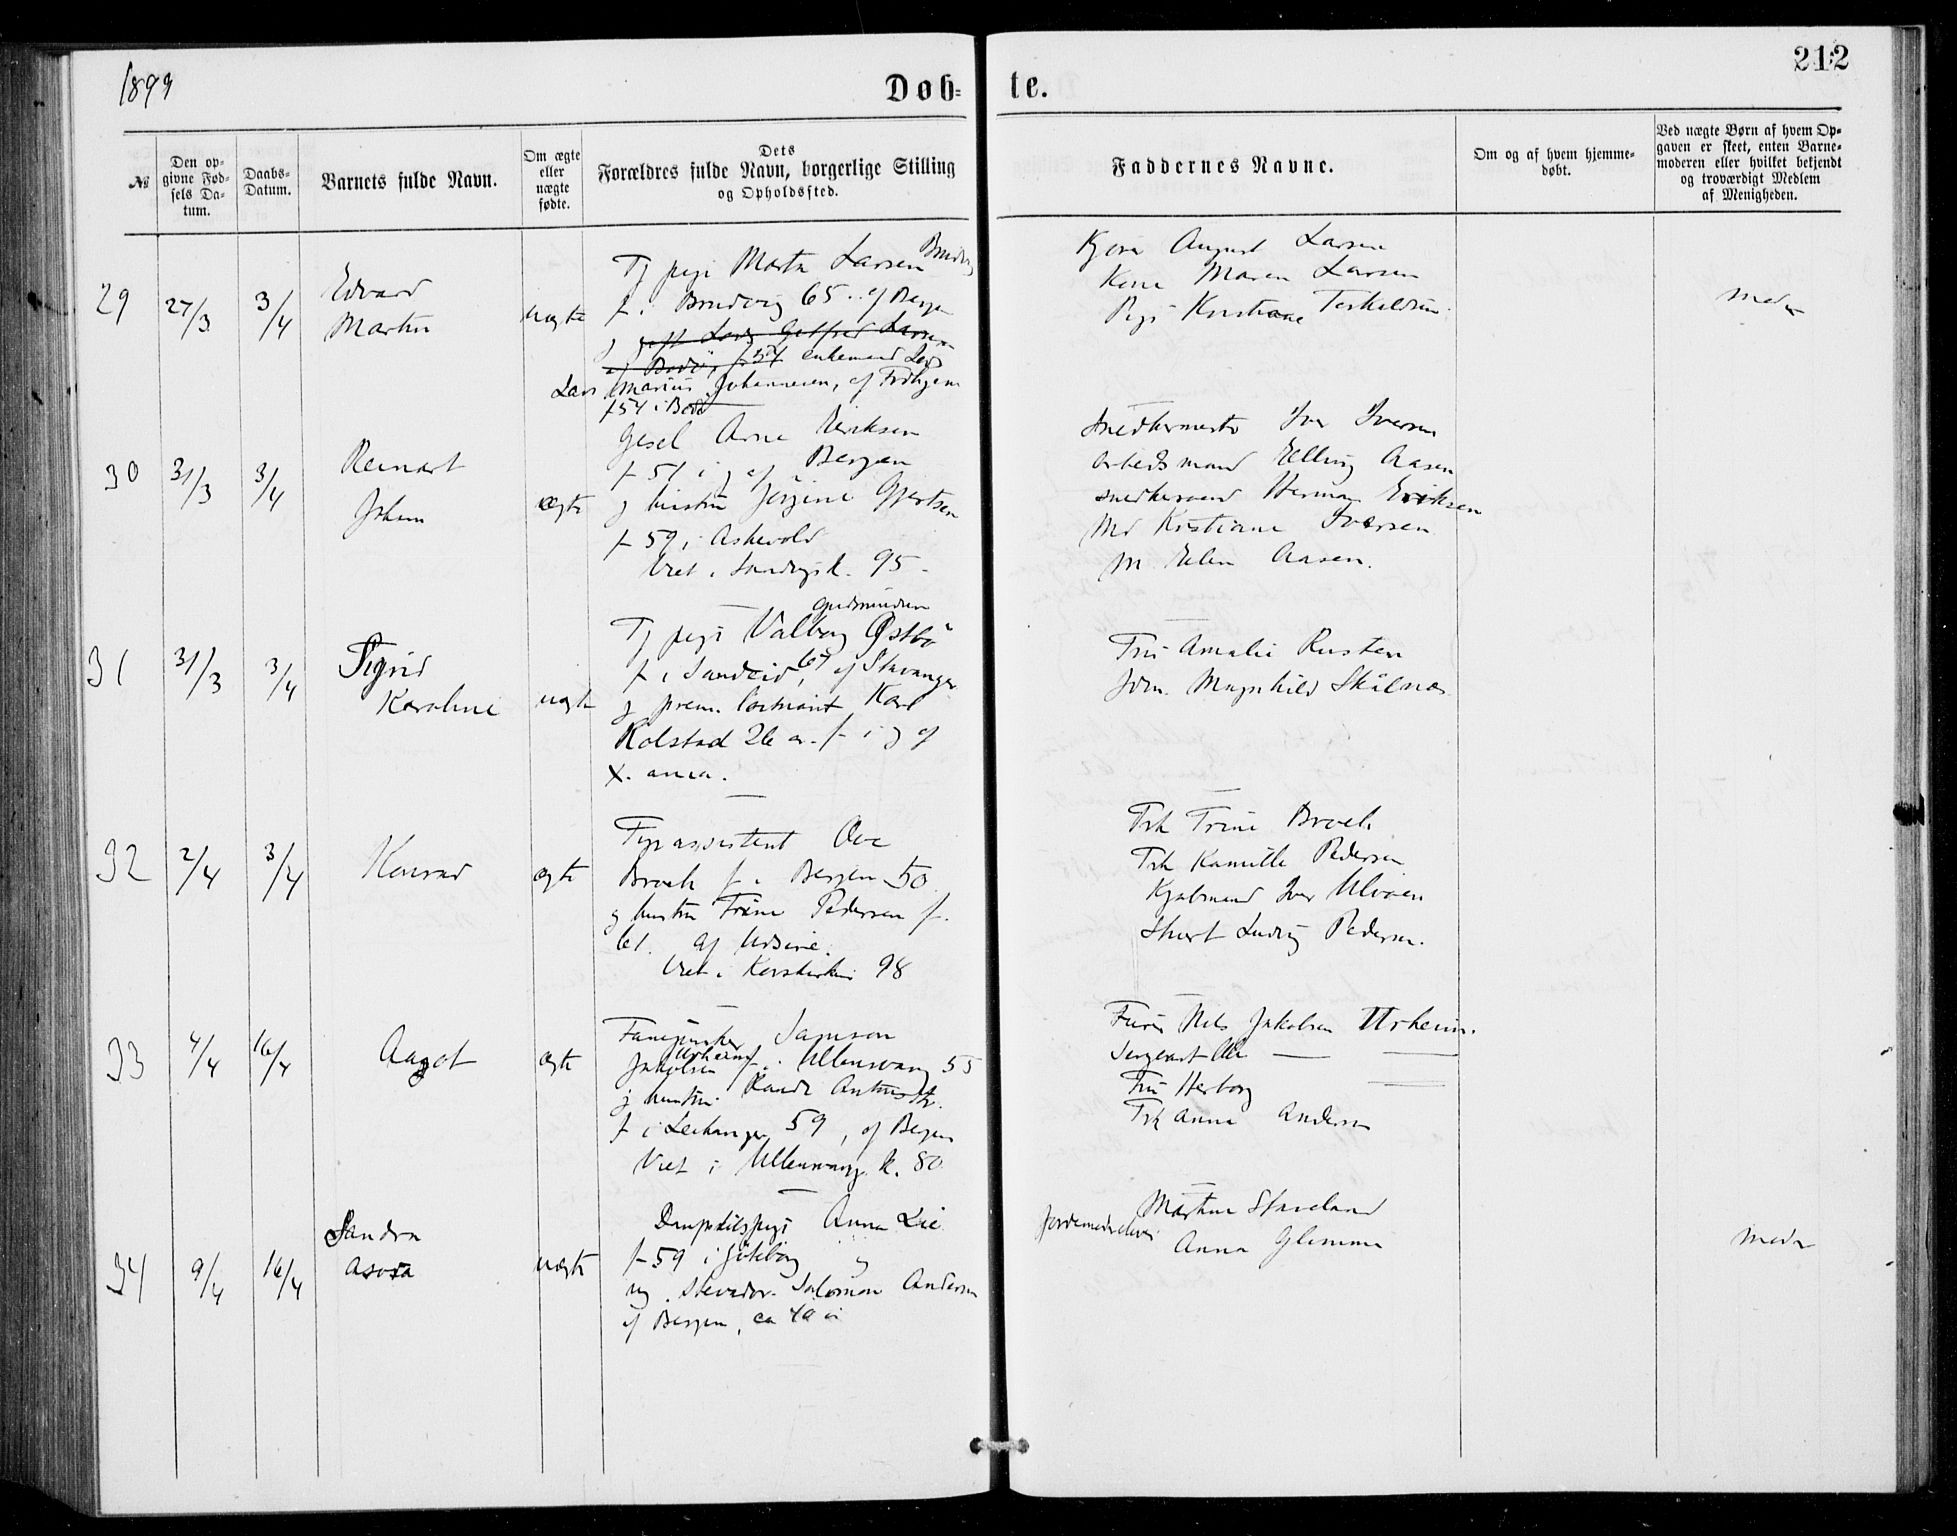 1899
Døb-
te.
212
№
Den op-
givne Fød-
sels Da-
tum.
Daabs-
Datum.
Barnets fulde Navn.
Om ægte
eller
uægte
fødte.
Dets
Forældres fulde Navn, borgerlige Stilling
og Opholdssted.
Faddernes Navne.
Om og af hvem hjemme-
døbt.
Ved uægte Børn af hvem Op-
gaven er skeet, enten Barne-
moderen eller hvilket bekjendt
og troværdigt Medlem
af Menigheden.
29
27/3
3/4
Edvard
Martin
uægte
Tj pige Marta Larsen
f. i 65. af Bergen
g
enkemand
Lars Marius Johannesen, af
f 54 i Bodø
August Larsen
Kone Maren Larsen
Pige Kristiane Terkeldsen
moder
30
31/3
3/4
Reinart
Johan
ægte
Gesel Arne Eriksen
f 51 i g af Bergen
g hustru Jørgine Gjertsen
f 59 i Askevold
Viet i 95
Snedkermester Iver Iversen
arbeidsmand Elling Aasen
snedkersvend Herman Eriksen
Md Kristiane Iversen
M Elen Aasen.
31
31/3
3/4
Sigrid
Karoline
uægte
Gudmundsen
Tj pige Valborg Østbø
f i Sandeid, 67 af Stavanger
g prem. løitnant Karl
Rolstad 26 a. f i g af
X. ania.
Fru Amalie Rusten
Jdm. Magnhild Skålnes
32
2/4
3/4
Konrad
ægte
Fyrassistent Ove
Broch f. i Bergen 50
g hustru Trine Pedersen f.
61. af Udsire.
Viet i Korskirken 98
Frk Trine Broch
Frk Kamille Pedersen
Kjøbmand Iver Ulvøen
Ludvig Pedersen.
33
4/4
16/4
Aagot
ægte
Fanejunker Samson
Urheim
Jakobsen f. i Ullensvang 55
g hustru Randi
f i Leikanger 59, af Bergen
Viet i Ullensvang k. 80
Furer Nils Jakobsen Urheim.
Sergeant Ole — —
Fru Herborg —
Frk Anna Andersen
34
9/4
16/4
Sandra
uægte
Anna Lie
f 59 i Göteborg
ug. stevedor Salomon Andersen
af Bergen, ca 40 a
Jordemoderelever Martine Staveland
Anna Glimme
moder